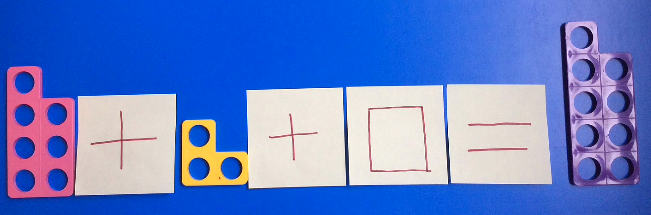 + + □ =